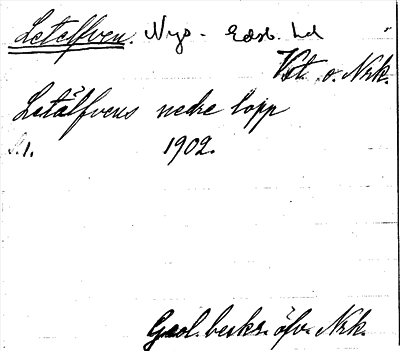 Letelfven. Nys. Edsb. hd
Vst. o. Nrk.
Letälfvens nedre lopp
s. 1. 1902.
Geol. beskr. öfv. Nrk.